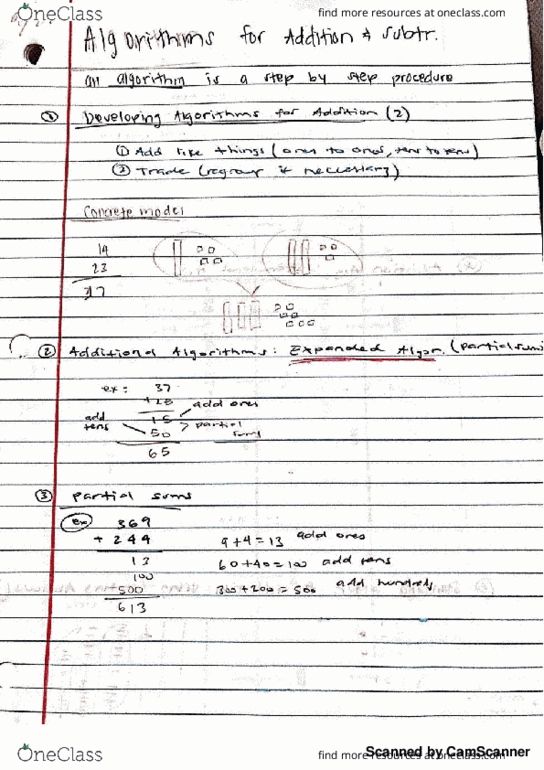 OneClass
find more resources at oneclass.com
find more resources at oneclass.com
Algorithms for Addition & subtr.
an algorithm is a step by step procedure
① Developing Algorithms for Addition (2)
① Add like things (ones to ones, tens to tens)
② Trade (regroup if neccessary)
Concrete model
14
23
37
② Additional Algorithms: Expanded Algor. (partial sums
ex: 37
+28 add ones
add tens 15 > partial sums
50
65
③ partial sums
ex 369
+ 244 9+4=13 add ones
13 60+40=100 add tens
100
500 300+200=500 add hundreds
613
OneClass
find more resources at oneclass.com
Scanned by CamScanner